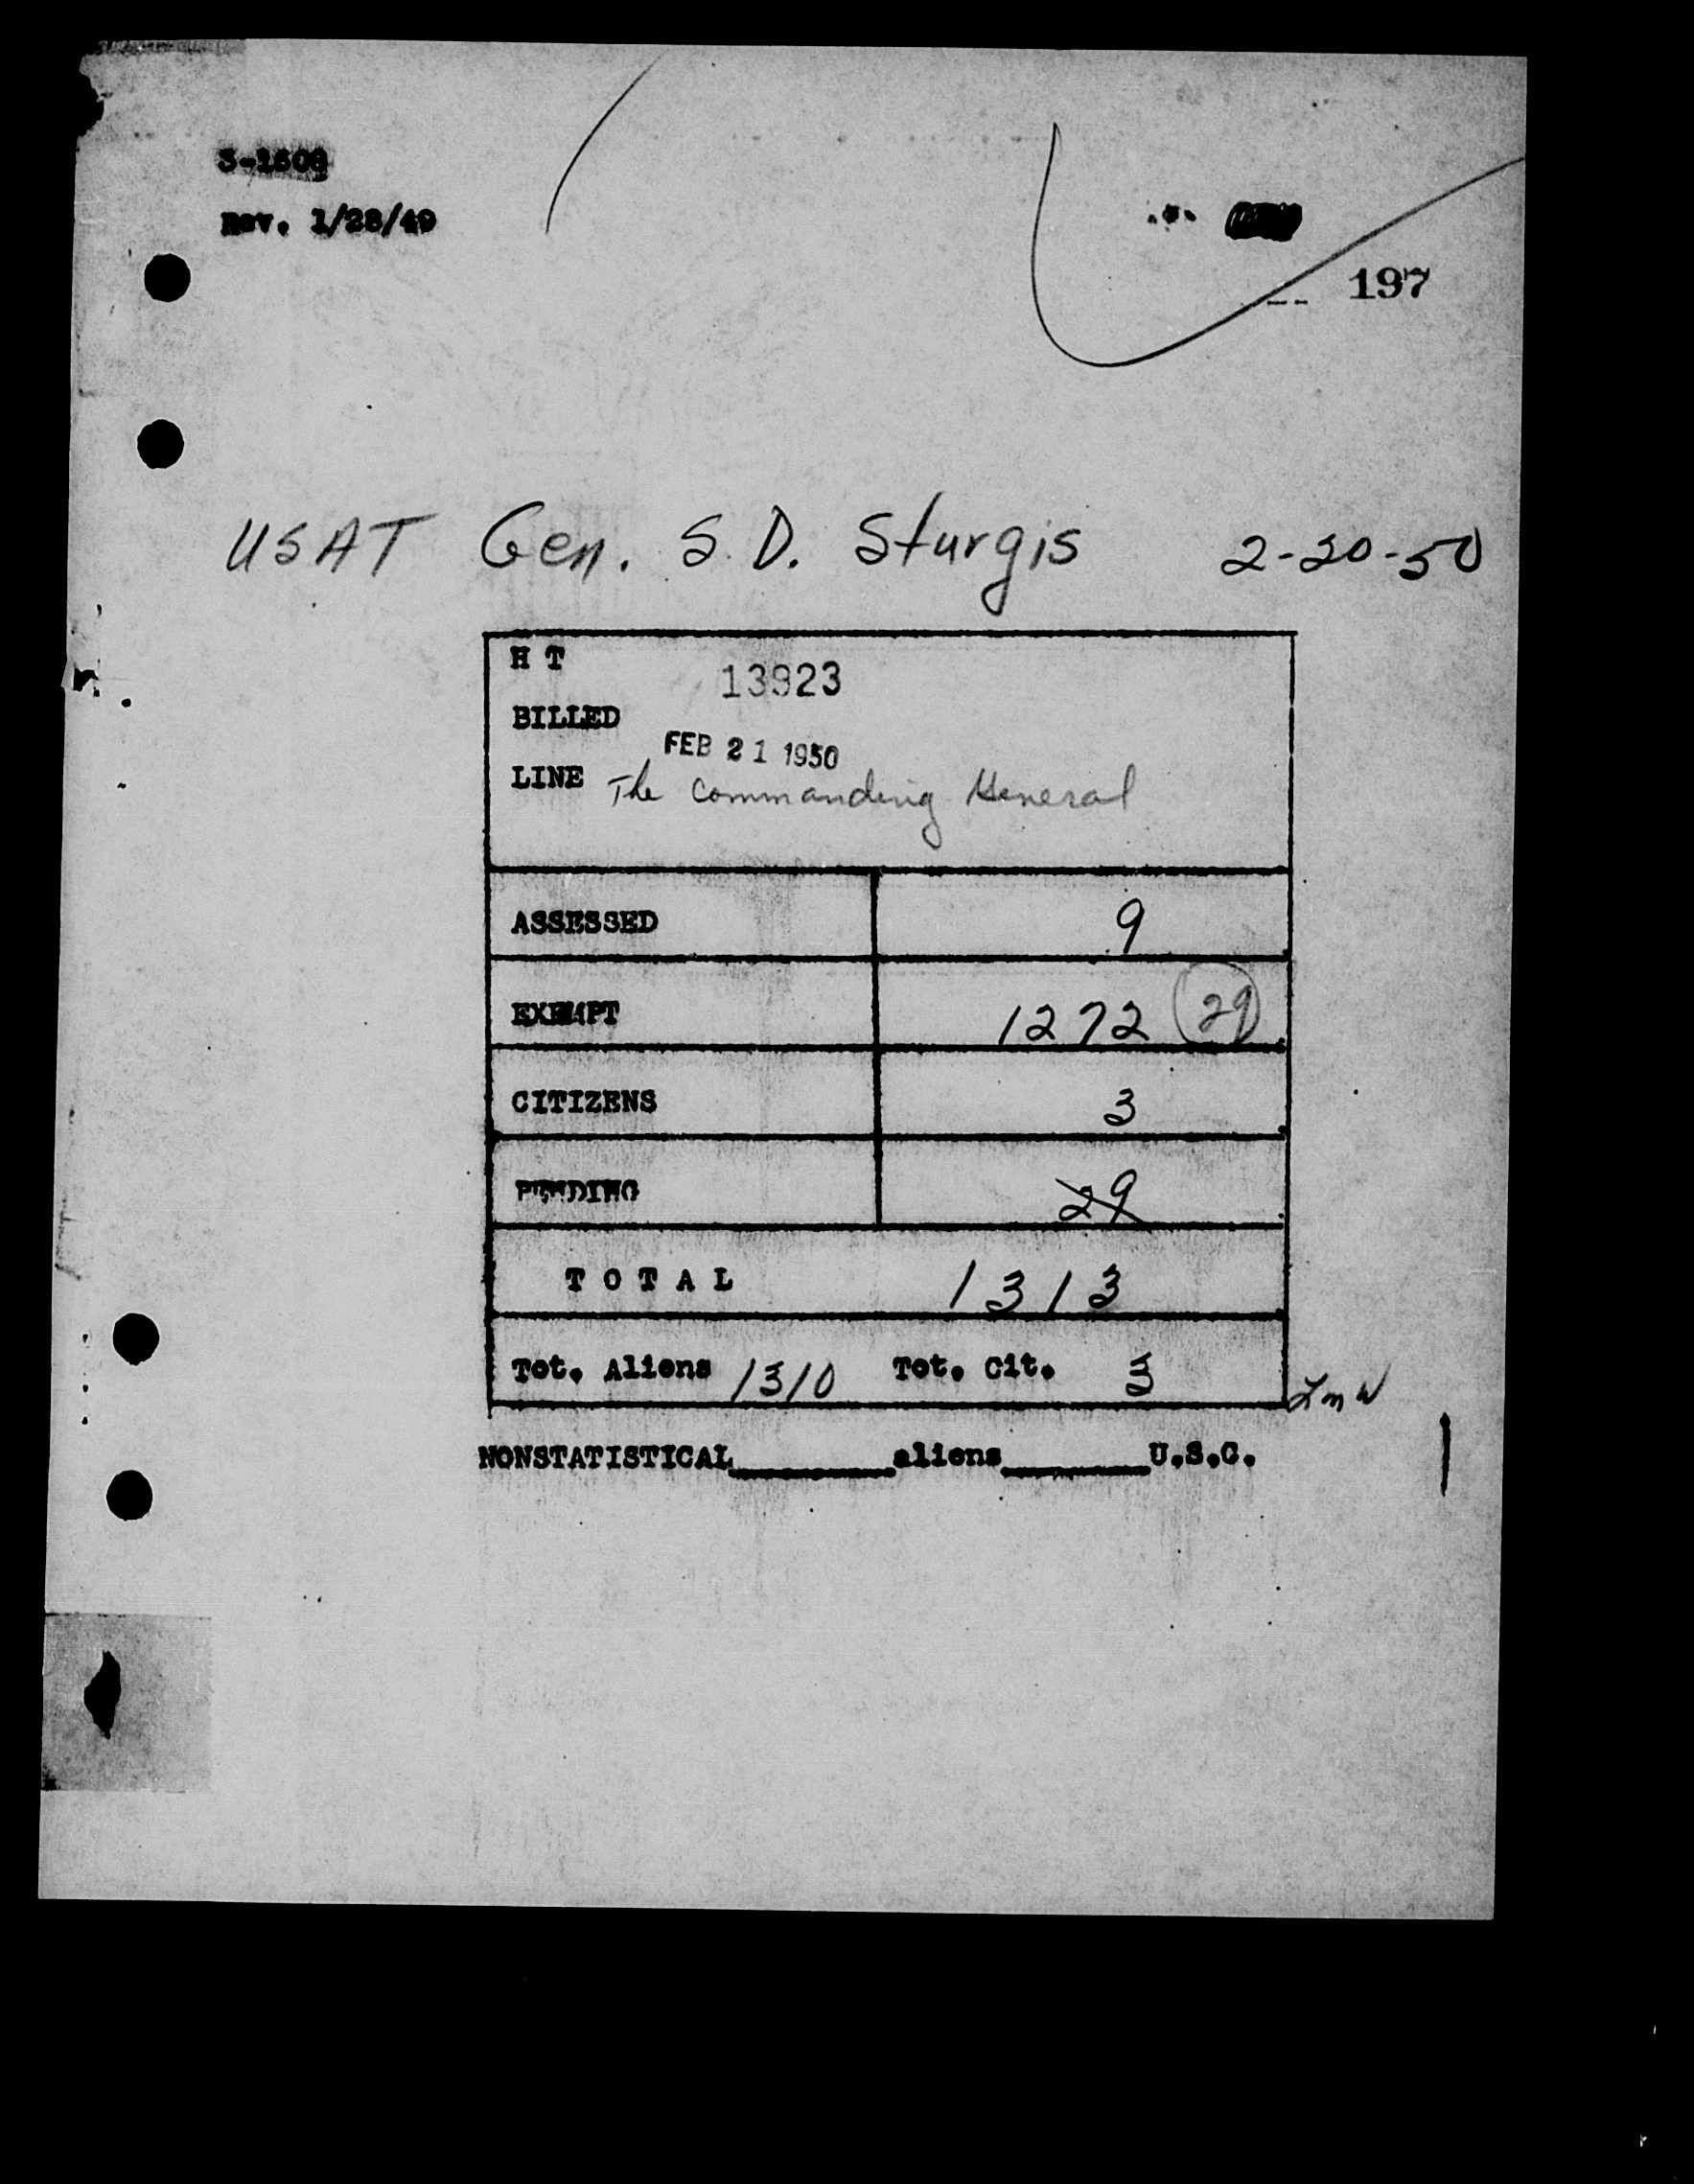 Rev. 1/28/49
197
USAT Gen. S. D. Sturgis 2-20-50
H T
13923
BILLED
FEB 21 1950
LINE The Commanding General
ASSESSED 9
EXEMPT 1272 29
CITIZENS 3
PENDING 29
T O T A L 1313
Tot. Aliens 1310 Tot. Cit. 3
NONSTATISTICAL________aliens________U.S.C.